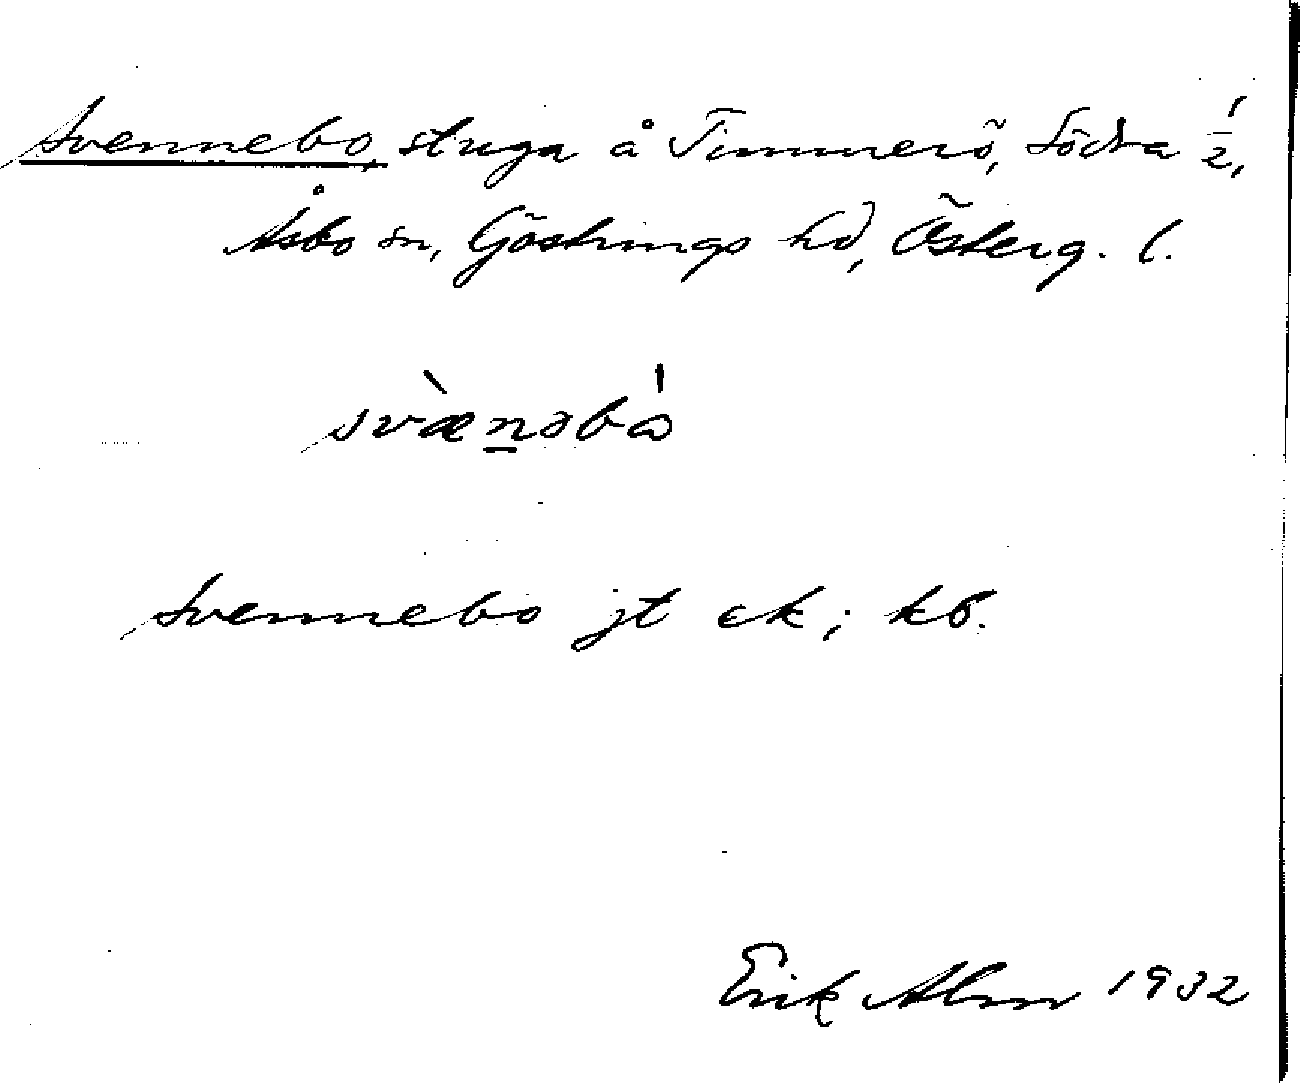 Svennebo, stuga å Timmerö, Södra 1/2,
Åsbo sn, Göstrings hd, Österg. l.
svæ̀nəbɷ̍
Svennebo jt ek; kb.
Erik Alm 1932